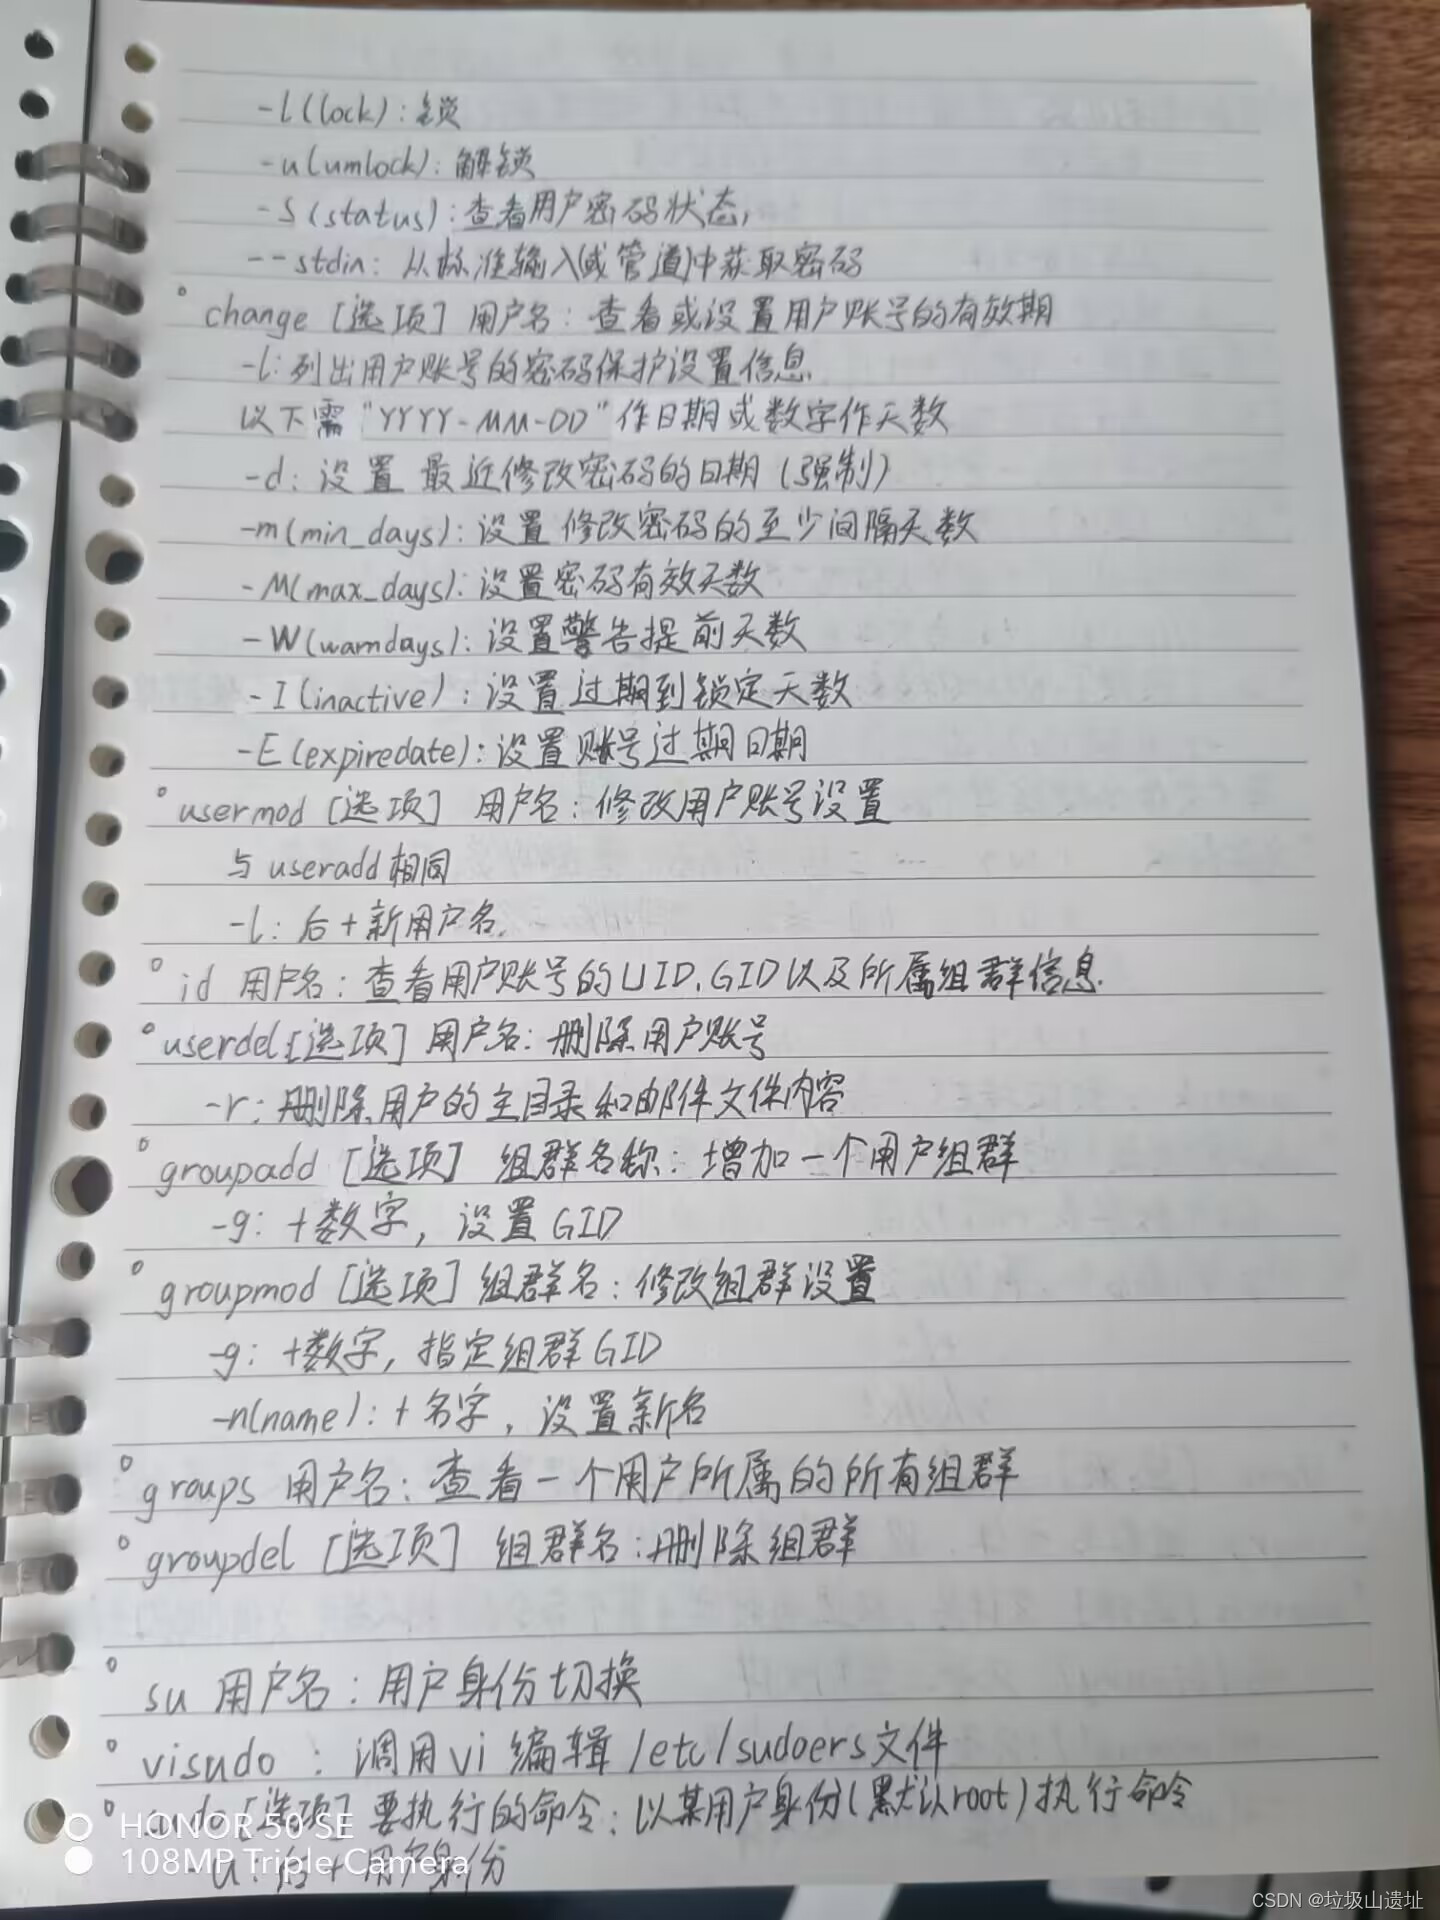 -l(lock):锁
-u(umlock):解锁
-S(status):查看用户密码状态,
--stdin:从标准输入(或管道)中获取密码
° change [选项] 用户名:查看或设置用户账号的有效期
-l:列出用户账号的密码保护设置信息
以下需"YYYY-MM-DD"作日期或数字作天数
-d:设置 最近修改密码的日期(强制)
-m(min_days):设置修改密码的至少间隔天数
-M(max_days):设置密码有效天数
-W(warndays):设置警告提前天数
-I(inactive):设置过期到锁定天数
-E(expiredate):设置账号过期日期
° usermod [选项] 用户名:修改用户账号设置
与useradd相同
-l:后+新用户名.
° id 用户名:查看用户账号的UID.GID以及所属组群信息.
° userdel[选项] 用户名:删除用户账号
-r:删除用户的主目录和邮件文件内容
° groupadd [选项] 组群名称:增加一个用户组群
-g:+数字,设置GID
° groupmod [选项] 组群名:修改组群设置
-g:+数字,指定组群GID
-n(name):+名字,设置新名
° groups 用户名:查看一个用户所属的所有组群
° groupdel [选项] 组群名:删除组群
° su 用户名:用户身份切换
° visudo :调用vi编辑/etc/sudoers文件
° sudo [选项] 要执行的命令:以某用户身份(默认root)执行命令
-u:后+用户身份
HONOR 50 SE
108MP Triple Camera
CSDN @垃圾山遗址